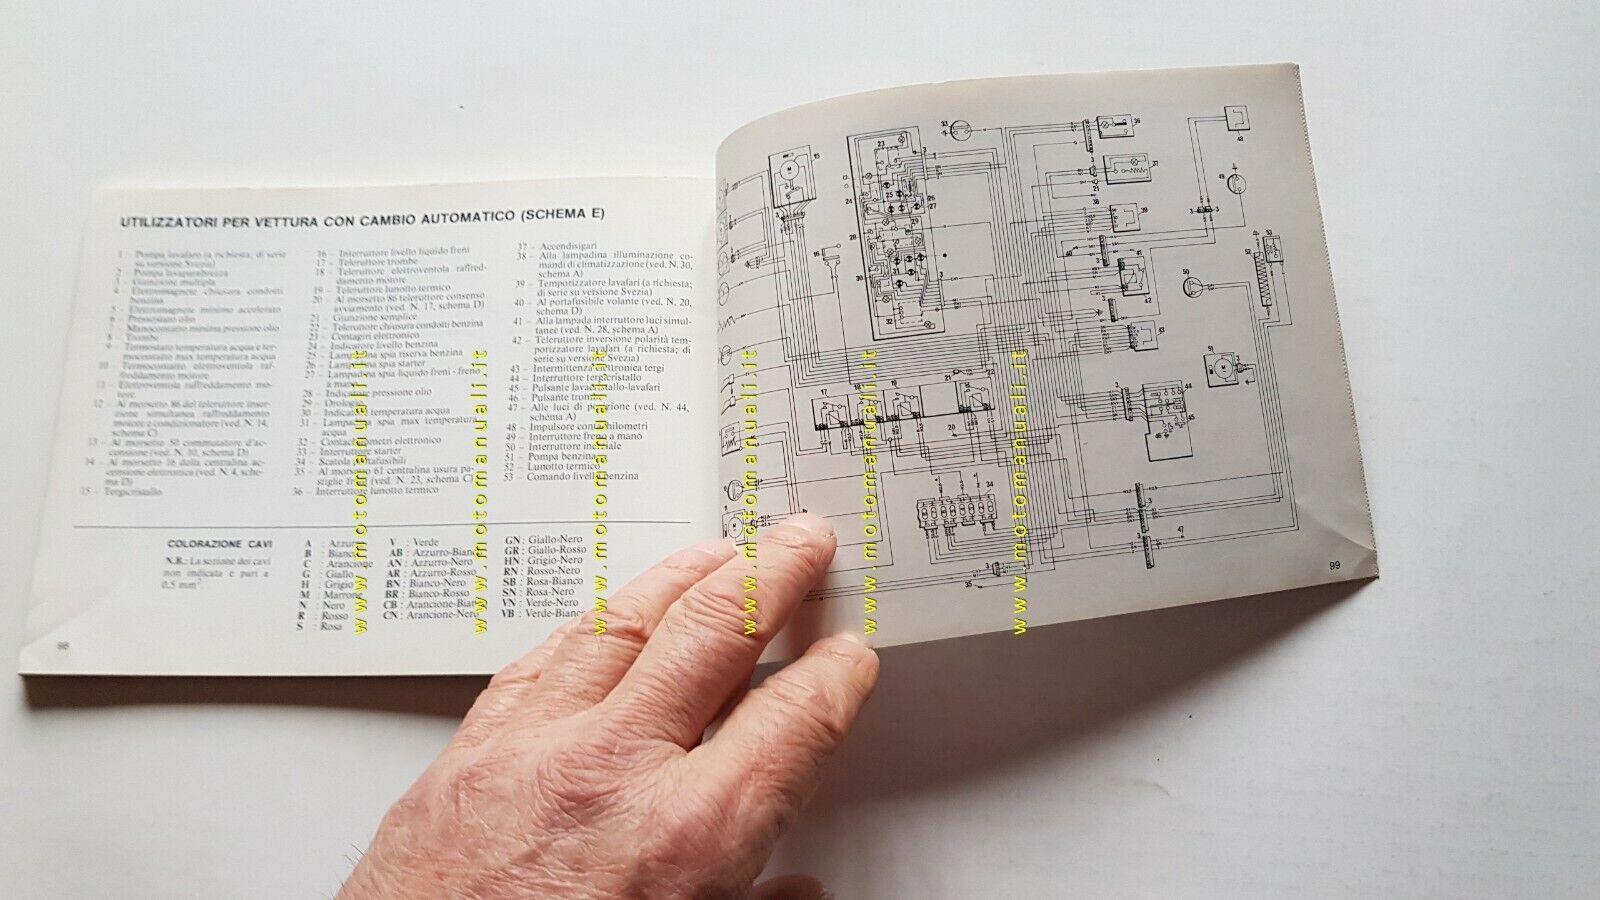 UTILIZZATORI PER VETTURA CON CAMBIO AUTOMATICO (SCHEMA E)
1 - Pompa lavafaro (a richiesta; di serie
su versione Svezia)
2 - Pompa lavaparabrezza
3 - Giunzione multipla
4 - Elettromagnete chiusura condotti
benzina
5 - Elettromagnete minimo accelerato
6 - Pressostato olio
7 - Manocontatto minima pressione olio
8 - Trombe
9 - Termostato temperatura acqua e ter-
mocontatto max temperatura acqua
10 - Termocontatto elettroventola raf-
freddamento motore
11 - Elettroventola raffreddamento mo-
tore
12 - Al morsetto 86 del teleruttore inser-
zione simultanea raffreddamento
motore e condizionatore (ved. N. 14,
schema C)
13 - Al morsetto 50 commutatore d'ac-
censione (ved. N. 10, schema D)
14 - Al morsetto 16 della centralina ac-
censione elettronica (ved. N. 4, sche-
ma D)
15 - Tergicristallo
16 - Interruttore livello liquido freni
17 - Teleruttore trombe
18 - Teleruttore elettroventola raffred-
damento motore
19 - Teleruttore lunotto termico
20 - Al morsetto 86 teleruttore consenso
avviamento (ved. N. 17, schema D)
21 - Giunzione semplice
22 - Teleruttore chiusura condotti benzina
23 - Contagiri elettronico
24 - Indicatore livello benzina
25 - Lampadina spia riserva benzina
26 - Lampadina spia starter
27 - Lampadina spia liquido freni - freno
a mano
28 - Indicatore pressione olio
29 - Orologio
30 - Indicatore temperatura acqua
31 - Lampadina spia max temperatura
acqua
32 - Contachilometri elettronico
33 - Interruttore starter
34 - Scatola portafusibili
35 - Al morsetto 61 centralina usura pa-
stiglie freni (ved. N. 23, schema C)
36 - Interruttore lunotto termico
37 - Accendisigari
38 - Alla lampadina illuminazione co-
mandi di climatizzazione (ved. N. 30,
schema A)
39 - Temporizzatore lavafari (a richiesta;
di serie su versione Svezia)
40 - Al portafusibile volante (ved. N. 20,
schema D)
41 - Alla lampada interruttore luci simul-
tanee (ved. N. 28, schema A)
42 - Teleruttore inversione polarità tem-
porizzatore lavafari (a richiesta; di
serie su versione Svezia)
43 - Intermittenza elettronica tergi
44 - Interruttore tergicristallo
45 - Pulsante lavacristallo-lavafari
46 - Pulsante trombe
47 - Alle luci di posizione (ved. N. 44,
schema A)
48 - Impulsore contachilometri
49 - Interruttore freno a mano
50 - Interruttore inerziale
51 - Pompa benzina
52 - Lunotto termico
53 - Comando livello benzina
COLORAZIONE CAVI
N.B.: La sezione dei cavi
non indicata è pari a
0,5 mm²
A : Azzurro
B : Bianco
C : Arancione
G : Giallo
H : Grigio
M : Marrone
N : Nero
R : Rosso
S : Rosa
V : Verde
AB : Azzurro-Bianco
AN : Azzurro-Nero
AR : Azzurro-Rosso
BN : Bianco-Nero
BR : Bianco-Rosso
CB : Arancione-Bianco
CN : Arancione-Nero
GN : Giallo-Nero
GR : Giallo-Rosso
HN : Grigio-Nero
RN : Rosso-Nero
SB : Rosa-Bianco
SN : Rosa-Nero
VN : Verde-Nero
VB : Verde-Bianco
98
15
33
23
24
25
26
27
28
29
30
32
36
37
21
38
39
40
41
42
43
48
49
50
52
53
51
16
17
18
19
20
21
22
34
35
44
45
46
47
99
www.motomanuali.it
www.motomanuali.it
www.motomanuali.it
www.motomanuali.it
www.motomanuali.it
www.motomanuali.it